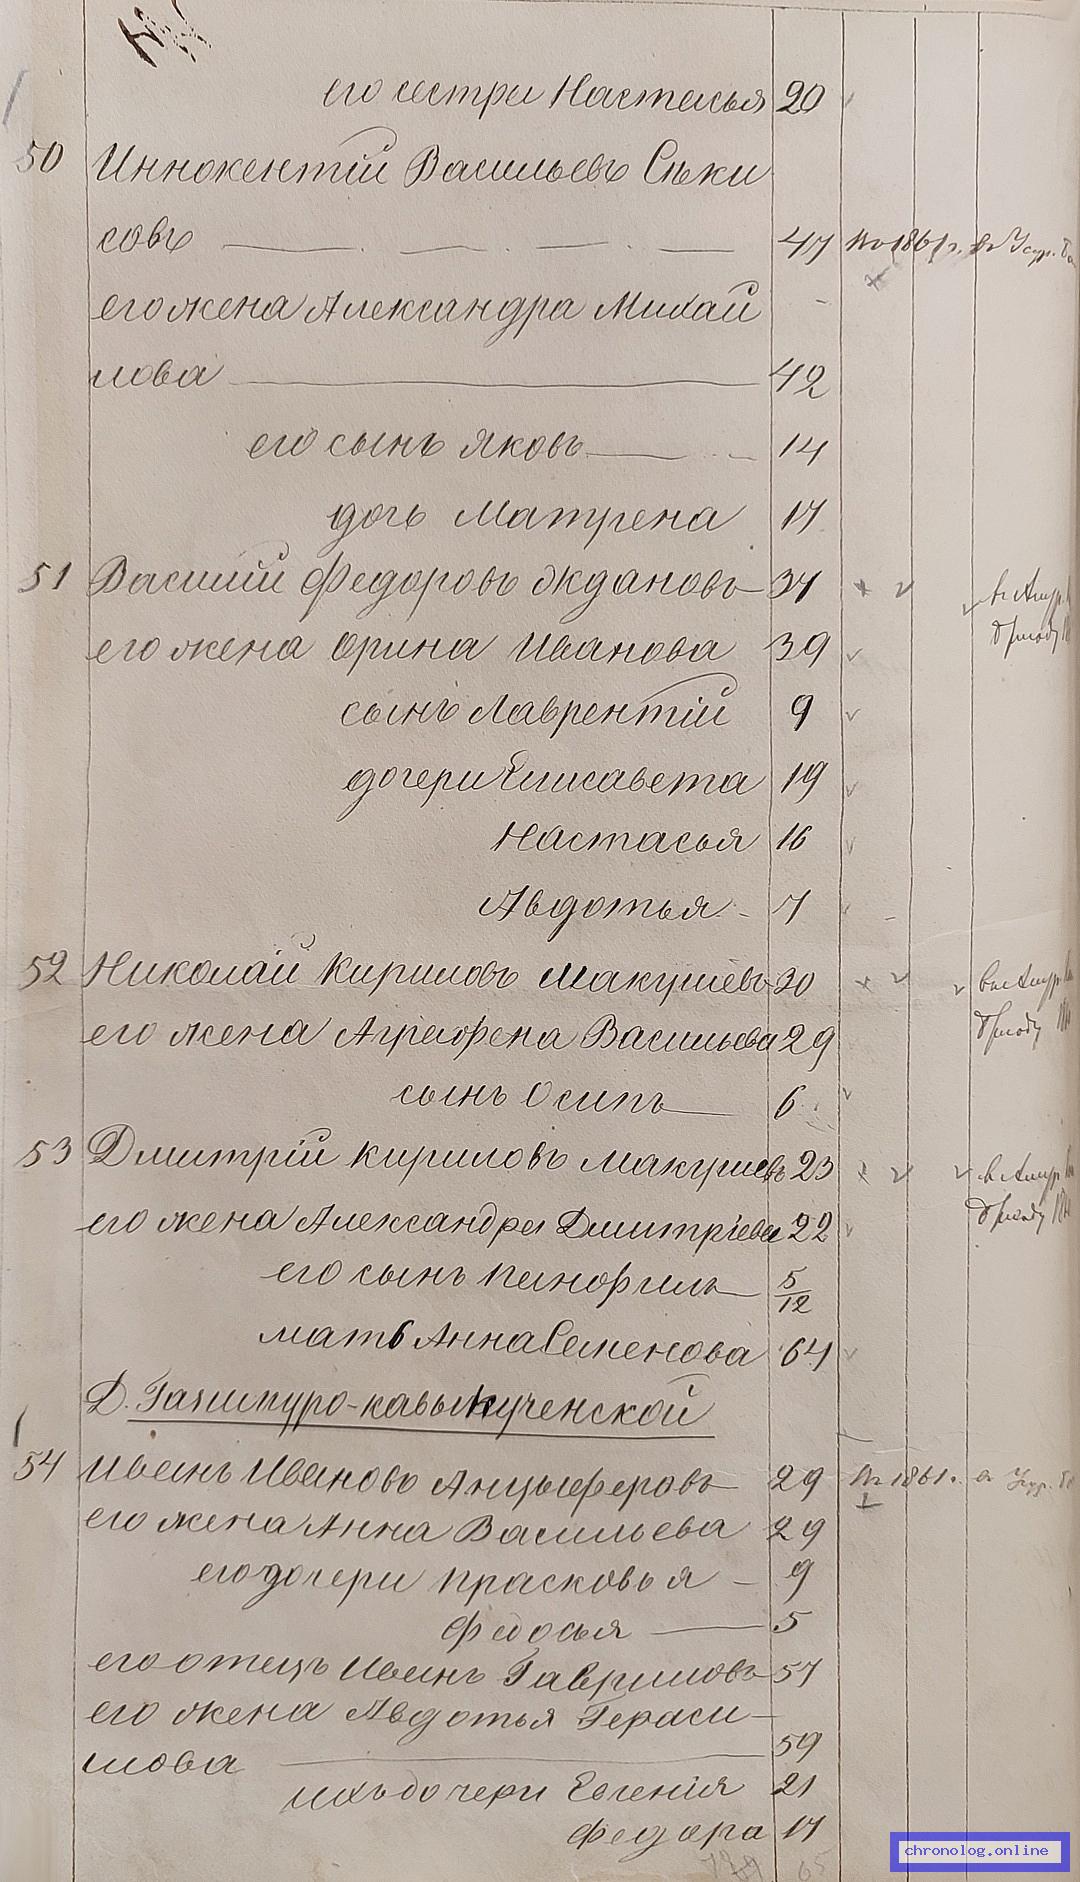 его сестра Настасья 20
50 Иннокентій Васильевъ Съки
совъ 47 въ 1861 г. въ Уссур.
его жена Александра Михай
лова 42
его сынъ Яковъ 14
дочь Матрена 17
51 Василій Федоровъ Ждановъ 37
его жена Орина Иванова 39
сынъ Лаврентій 9
дочери Елисавета 19
Настасья 16
Авдотья 7
52 Николай Кириловъ Макушевъ 30
его жена Аграфена Васильева 29
сынъ Осипъ 6
53 Дмитрій Кириловъ Макушевъ 23
его жена Александра Дмитріева 22
его сынъ Панфилъ 5/12
мать Анна Семенова 64
Д. Газимуро-кавыкученской
54 Иванъ Ивановъ Анцыферовъ 29 въ 1861 г.
его жена Анна Васильева 29
его дочери Прасковья 9
Федосья 5
его отецъ Иванъ Гавриловъ 57
его жена Авдотья Гераси-
мова 59
ихъ дочери Евгенія 21
Федора 17
chronolog.online